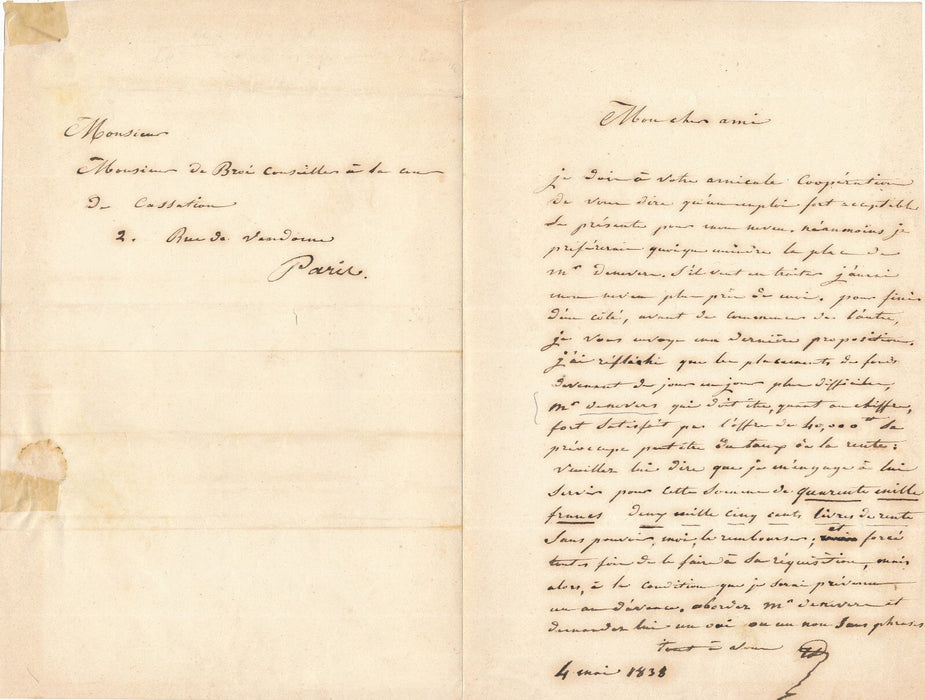 Monsieur
Monsieur de Broé Conseiller à la cour
De Cassation
2. Rue de Vendome
Paris.
Mon cher ami
je dois à votre amicale Coopération
de vous dire qu'un emploi fort acceptable
se présente pour mon neveu. néanmoins je
préférerais quoique moindre la place de
Mr denevers. S'il veut en traiter j'aurai
mon neveu plus près de moi. pour finir
d'un côté, avant de commencer de l'autre,
je vous envoye ma dernière proposition.
j'ai réfléchi que les placements de fonds
devenant de jour en jour plus difficiles,
Mr denevers qui doit être, quant au chiffre,
fort satisfait par l'offre de 40,000 se
préoccupe peut être du taux de la rente:
Veuillez lui dire que je m'engage à lui
servir pour cette somme de quarente mille
francs deux mille cinq cents livres de rente
Sans pouvoir, moi, le rembourser, et forcé
toutes fois de le faire à sa réquisition, mais
alors, à la condition que je serai prévenu
un an d'avance. abordez Mr denevers et
demandez lui un oui ou un non Sans phrases
tout à vous
4 mai 1838